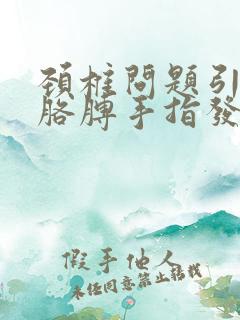 頚椎問題引
胳膊手指發
假手他人
未任同意禁止轉載